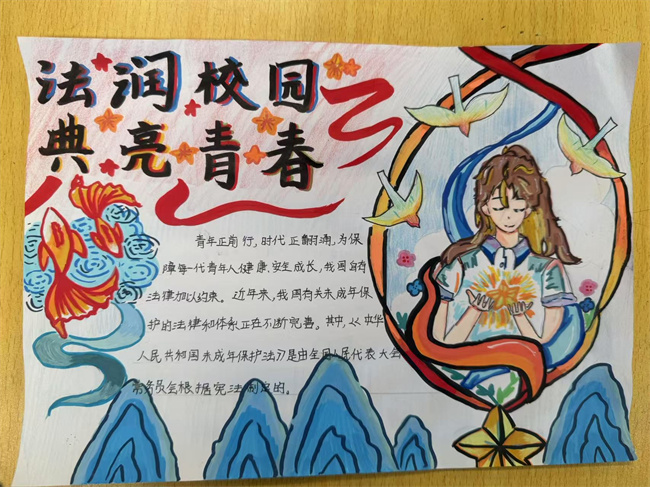 法润校园
典亮青春
青年正前行,时代正翻涌,为保
障每一代青年人健康,安全成长,我国自有
法律加以约束。近年来,我国有关未成年保
护的法律和体系正在不断完善。其中,《中华
人民共和国未成年保护法》是由全国人民代表大会
常务员会根据宪法制定的。